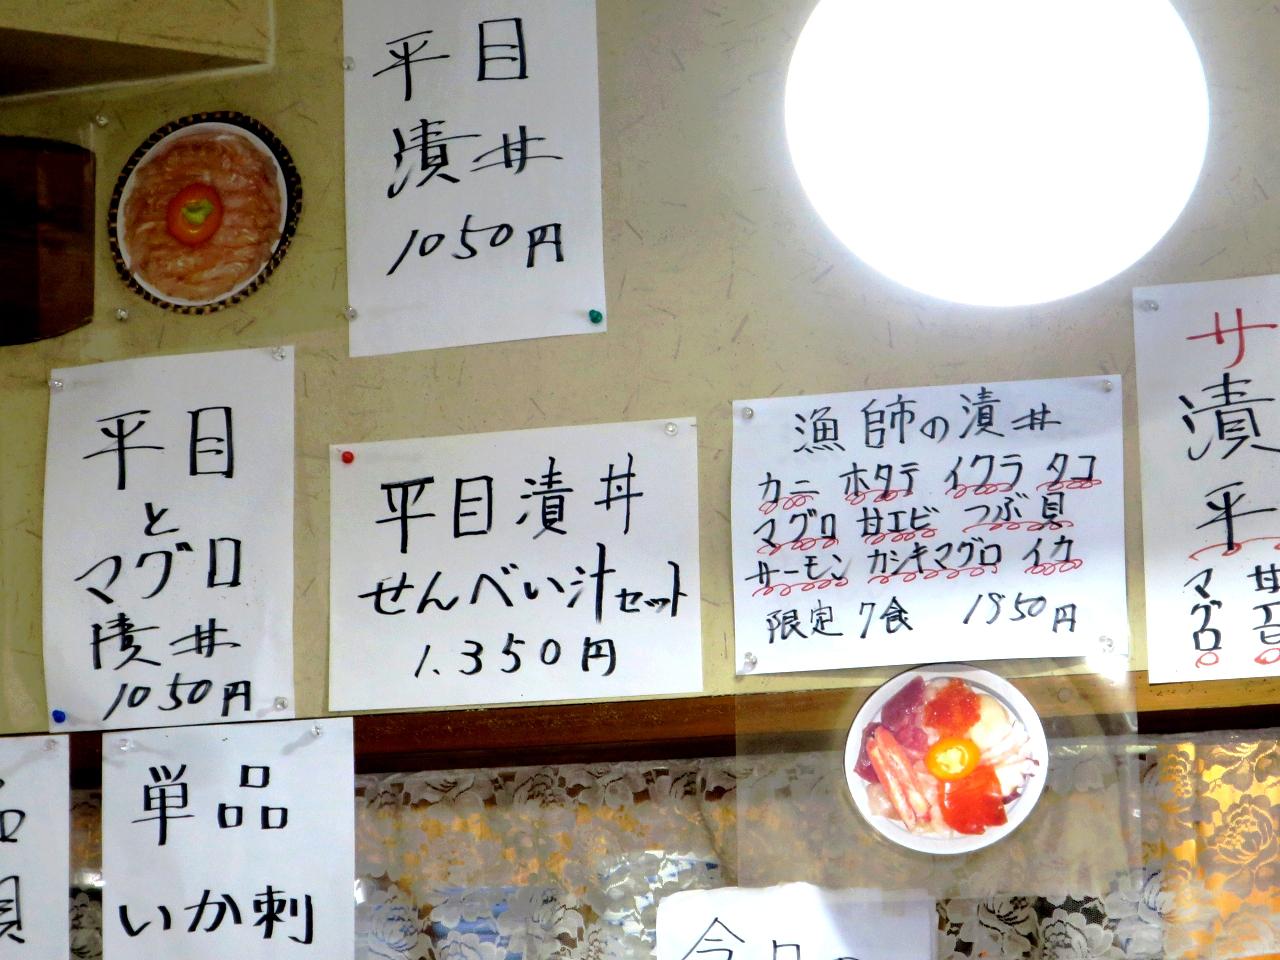 平目
漬丼
1050円
平目
と
マグロ
漬丼
1050円
平目漬丼
せんべい汁セット
1.350円
漁師の漬丼
カニ ホタテ イクラ タコ
マグロ 甘エビ つぶ貝
サーモン カジキマグロ イカ
限定 7食 1950円
サ
漬
平
マグロ
甘エビ
単品
いか刺
貝
今日の